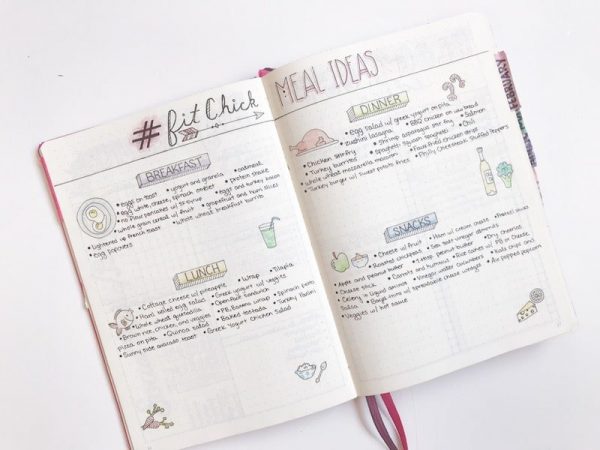 #Fit Chick
BREAKFAST
• egg on toast • yogurt and granola • oatmeal
• egg white, cheese, spinach omelet • protein shake
• no flour pancakes w/ SF syrup • egg and turkey bacon
• whole grain cereal w/ fruit • grapefruit and ham slices
• Lightened up french toast • whole wheat breakfast burrito
• egg popovers
LUNCH
• Cottage cheese w/ pineapple • Wrap • Tilapia
• Hard boiled egg salad • Greek yogurt w/ veggies
• Whole wheat quesadilla • Open faced sandwich
• Brown rice, chicken, and veggies • PB, banana wrap • Turkey
pizza on pita • Quinoa salad • Baked tostada
• Sunny side avocado toast • Greek Yogurt Chicken Salad
MEAL IDEAS
DINNER
• Egg salad w/ greek yogurt on pita
• zucchini lasagna • BBQ chicken on ww bread
• Chicken stir-fry • Shrimp asparagus stir fry • Salmon
• Turkey burritos • Spaghetti squash spaghetti • Chili
whole wheat mozzarella • Faux fried chicken strips
• Turkey burger w/ sweet potato fries • Philly Cheesesteak Stuffed Peppers
SNACKS
• Cheese w/ fruit • Ham w/ cream cheese • Pretzel sticks
• Roasted chickpeas • Sea salt vinegar almonds
• Apple and peanut butter • 1 tbsp. peanut butter • Dry Cheerios
• Cheese stick • Carrots and hummus • Rice cakes w/ PB or Cheese
• Celery w/ liquid aminos • Vinegar water cucumbers • Kale chips and
salsa • Baya minis w/ spreadable cheese wedge • Air popped popcorn
• Veggies w/ hot sauce
FEBRUARY